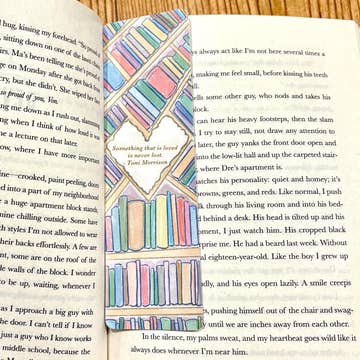 l hug, kissing my forehead.
, sitting down on one of the
s. Ma's been telling me she's proud
ge on Monday after she got back from
cry, but she didn't. She wiped her
so proud of you, Him.
ed me down as I rush out, slamming
when I think of how loud it was
e a lecture on that later.
ow, where I have more important
ine—crooked, paint peeling, doors
ed into a part of my neighborhood
a huge apartment block stands,
mine chilling outside. Some have
th styles I'm not allowed to wear
heir backs effortlessly. A few are
some of the noise from outside
de walls of the block. I wonder
to be up, waiting, whenever I
s I approach a big guy with
the door. I can't tell if I know
that I know but don't know
middle school, because the
Something that is loved
is never lost.
Toni Morrison
ys always act like I'm not here several times a
making me feel small, before kissing his teeth
ells some other guy, who nods and takes his
hear his heavy footsteps, then the slam
I try to stay still, not draw any attention to
later, the guy yanks the front door open and
into the low-lit hall and up the carpeted stair-
where Dre's apartment is.
atches his personality: quiet and homey; it's
browns, greens, and reds. Like normal, I push
lk through his living room and into his bed-
d behind a desk. His head is tilted up and his
ment, I think I just saw him. His cropped black
rprise me. He had a beard last week. Without
al eighteen-year-old. Like the boy I grew up
adily, and his eyes open lazily. A smile creeps
, pushing himself out of the chair and swag-
t until we are inches away from each other.
In the silence, my palms sweat, and my heartbeat goes wild like it
always does whenever I'm near him.